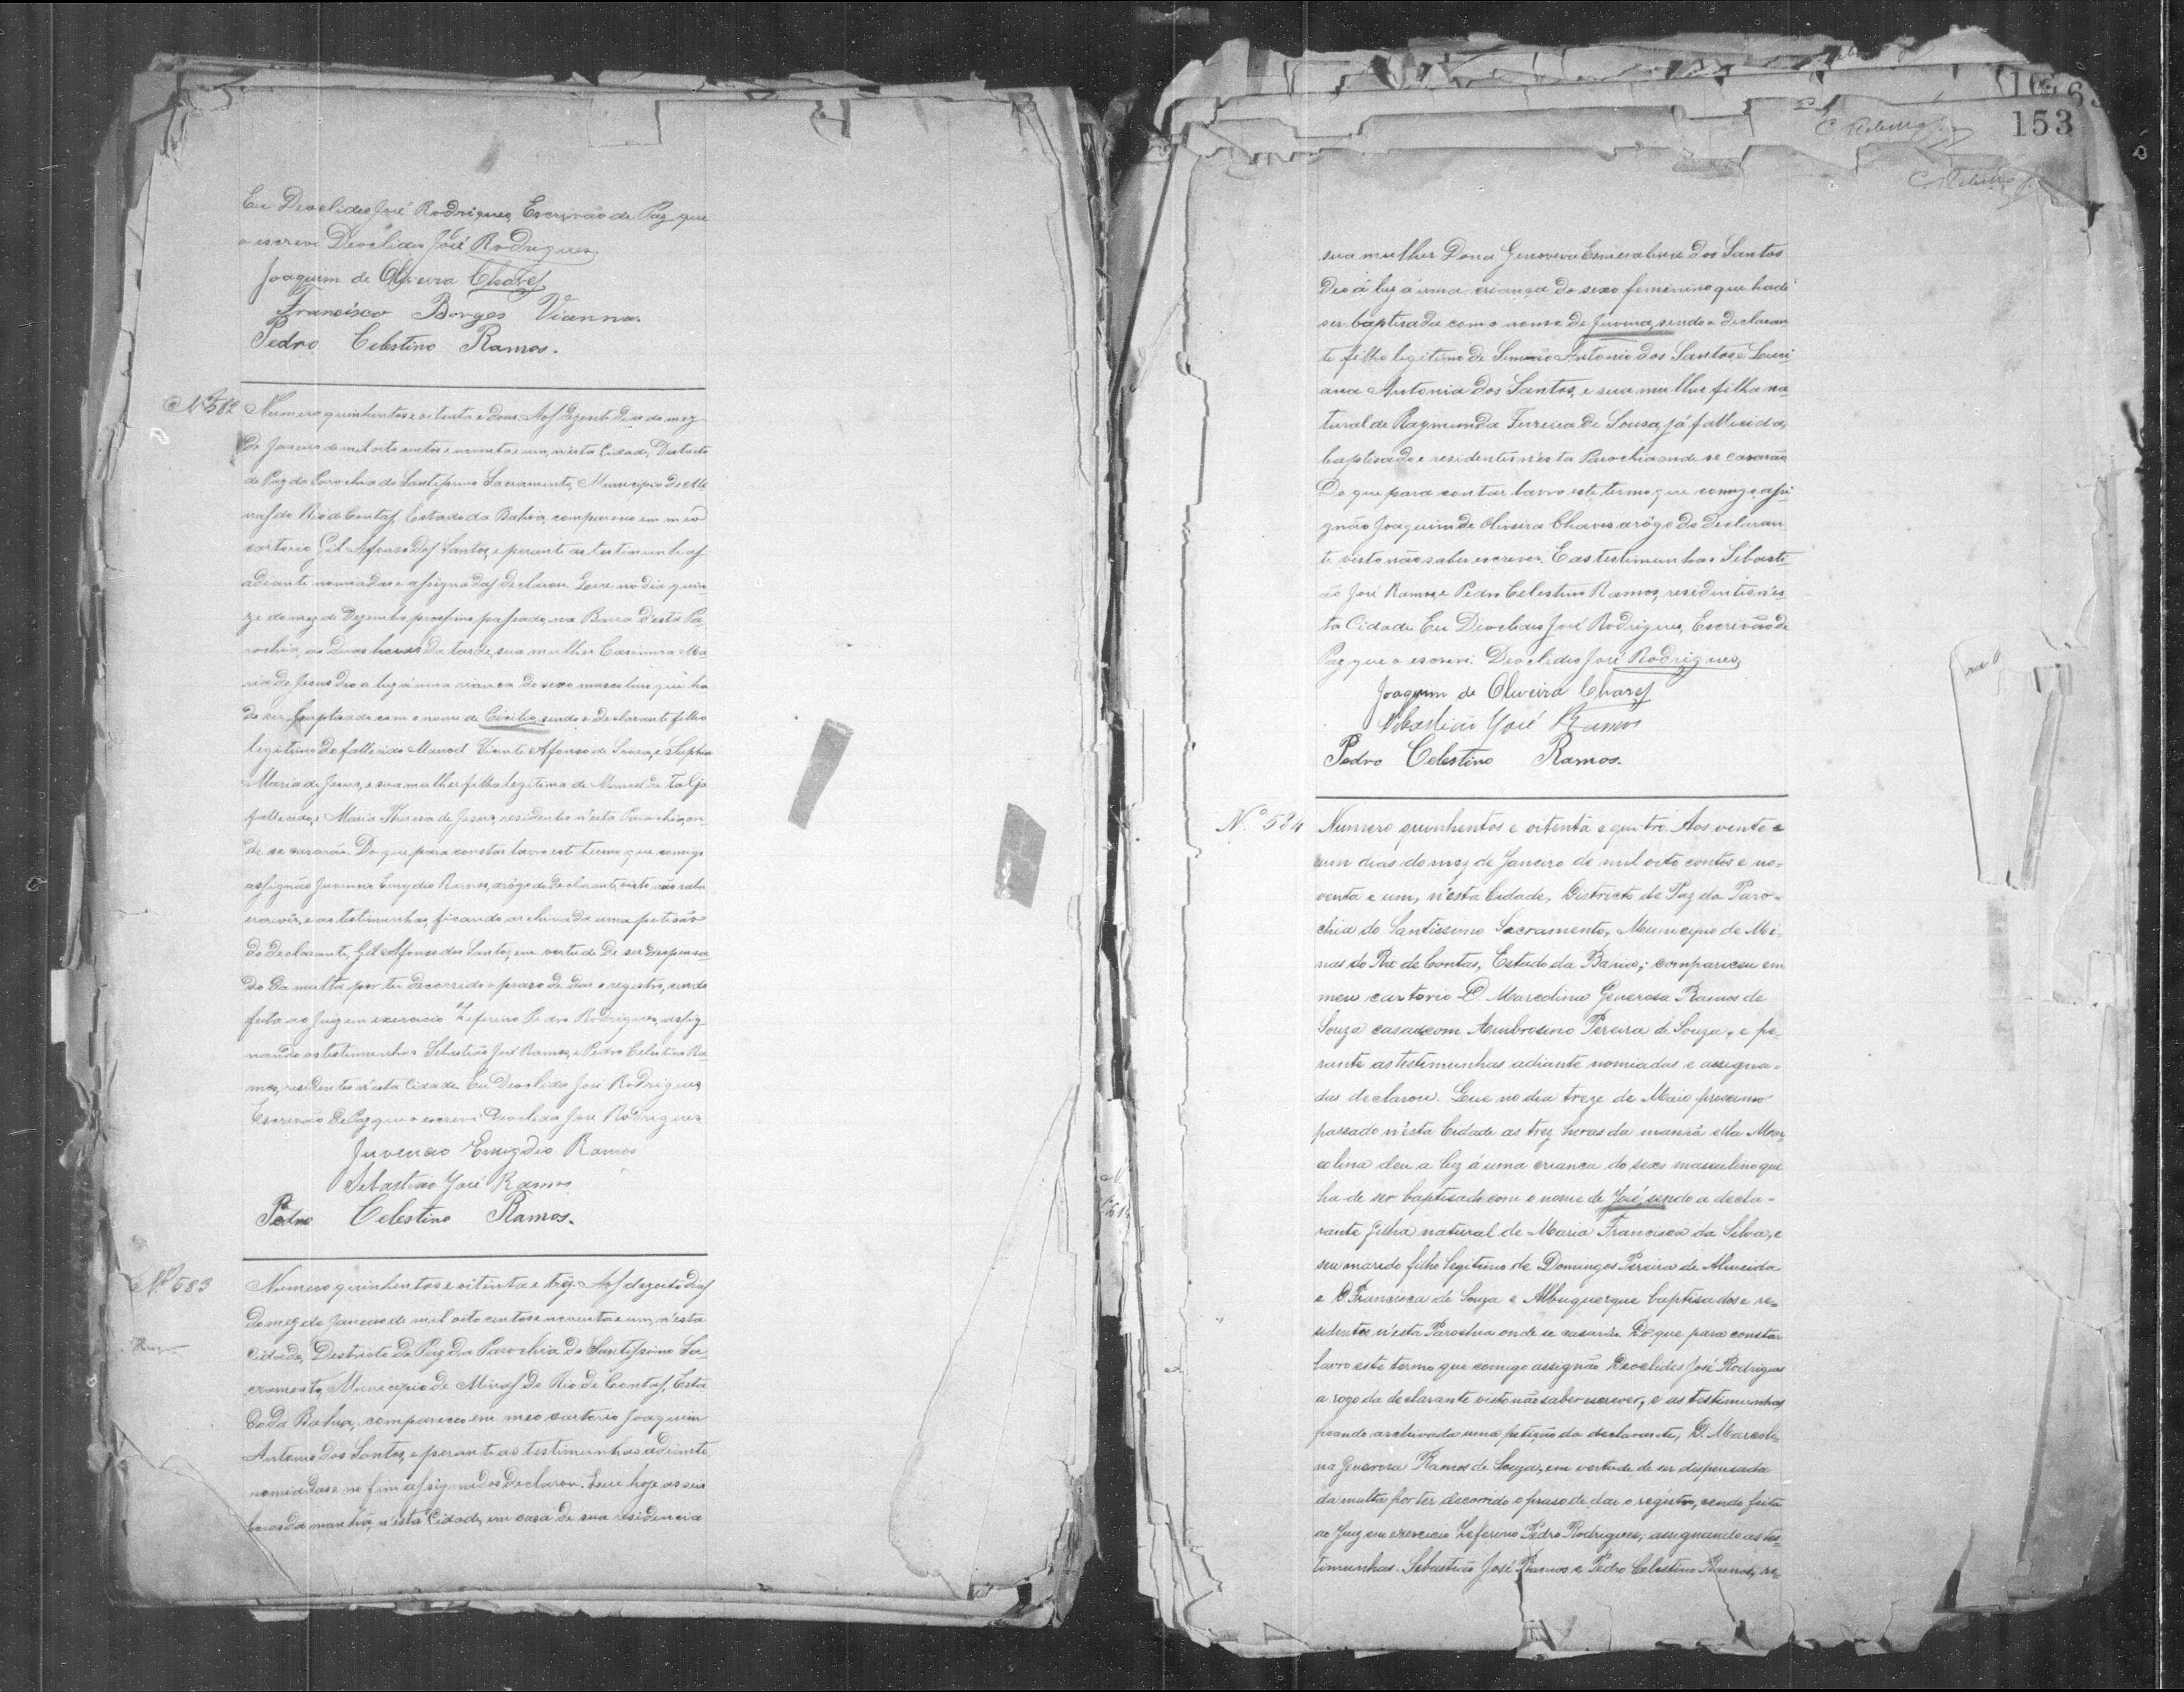 Eu Deoclides José Rodrigues, Escrivão de Paz que
o escrevi Deoclides José Rodrigues.
Joaquim de Oliveira Chaves
Francisco Borges Vianna.
Pedro Celestino Ramos.
Nº 582 Numero quinhentos e oitenta e dous. Aos dezesete dias do mez
de Janeiro de mil oito centos e noventa e um, n'esta Cidade, Districto
de Paz da Parochia do Santissimo Sacramento, Municipio de Mi
nas do Rio de Contas, Estado da Bahia, compareceu em meo
cartorio Gil Afonso dos Santos, e perante as testimunhas
adiante nomiadas e assignadas declarou. Que no dia quin
ze do mez de Dezembro proximo passado, na Barra d'esta Pa
rochia, as duas horas da tarde, sua mulher Casimira Ma
ria de Jesus deo a luz á uma criança do sexo masculino que ha
de ser baptisado com o nome de Cicilio, sendo o declarante filho
legitimo do fallecido Manoel Vicente Afonso de Sousa, e
Maria de Jesus, e sua mulher filha legitima de Manoel de tal já
fallecido, e Maria Theresa de Jesus, residentes n'esta Parochia, on
de se casarão. Do que para constar lavro este termo que comigo
assignão Juvencio Emygdio Ramos, arôgo do declarante, visto não saber
escrever, e as testimunhas, ficando archivada uma petisão
do declarante, Gil Afonso dos Santos, em vertude de ser despensa
do da multa por ter decorrido o praso de dar o registro, sendo
feita ao Juiz em exercicio Zeferino Pedro Rodrigues, assig
nando as testimunhas Sebastião José Ramos, e Pedro Celestino Ra
mos, residentes n'esta Cidade. Eu Deoclides José Rodrigues
Escrivão de Paz que o escrevi Deoclides José Rodrigues
Juvencio Emigdio Ramos
Sebastião José Ramos
Pedro Celestino Ramos.
Nº 583 Numero quinhentos e oitenta e trez. Aos dezoito dias
do mez de Janeiro de mil oito centos e noventa e um, n'esta
Cidade, Districto de Paz da Parochia do Santissimo Sa
cramento, Municipio de Minas do Rio de Contas, Esta
do da Bahia, compareceo em meo cartorio Joaquim
Antonio dos Santos, e perante as testimunhas adiante
nomiadas e no fim assignados declarou. Que hoje as seis
horas da manhã, n'esta Cidade, em casa de sua residencia
153
sua mulher Dona Genoveva Esmeralina dos Santos
deo á luz á uma criança do sexo femenino que hade
ser baptisada com o nome de Juvina, sendo o declaran
te filho legitimo de Simião Antonio dos Santos e Louri
ana Antonia dos Santos, e sua mulher filha na
tural de Raymunda Ferreira de Sousa já fallecida,
baptisado e residentes n'esta Parochia onde se casarão
Do que para contar lavro este termo que comigo assi
gnão Joaquim de Oliveira Chaves arôgo do declaran
te visto não saber escrever. E as testimunhas Sebasti
ão José Ramos, e Pedro Celestino Ramos, residentes n'es
ta Cidade. Eu Deoclides José Rodrigues, Escrivão de
Paz que o escrevi. Deoclides José Rodrigues
Joaquim de Oliveira Chaves
Sebastião José Ramos
Pedro Celestino Ramos.
Nº 584 Numero quinhentos e oitenta e quatro. Aos vente e
um dias do mez de Janeiro de mil oito centos e no-
venta e um, n'esta Cidade, Districto de Paz da Paro-
chia do Santissimo Sacramento, Municipio de Mi-
nas do Rio de Contas, Estado da Bahia; compariceu em
meu cartorio D. Marcolina Generosa Ramos de
Souza casada com Ambrosino Pereira de Souza, e pe-
rante as testimunhas adiante nomiadas e assigna-
das declarou. Que no dia treze de Maio proximo
passado n'esta Cidade as trez horas da manhã ella Mar
colina deu a luz á uma crianca do sexo masculino que
ha de ser baptisado com o nome de José, sendo a decla-
rante filha natural de Maria Francisca da Silva, e
seu marido filho legitimo de Domingos Pereira de Almeida
e D. Francisca de Souza e Albuquerque baptisados e re-
sidentes n'esta Parochia onde se casarão. Do que para constar
lavro este termo que comigo assignão Deoclides José Rodrigues
a rogo da declarante visto não saber escrever, e as testimunhas
ficando archivada uma petição da declarante, D. Marcoli-
na Generosa Ramos de Souza, em vertude de ser dispensada
da multa por ter decorrido o praso de dar o registro, sendo feita
ao Juiz em exercicio Zeferino Pedro Rodrigues; assignando as tes-
timunhas. Sebastião José Ramos e Pedro Celestino Ramos, re-